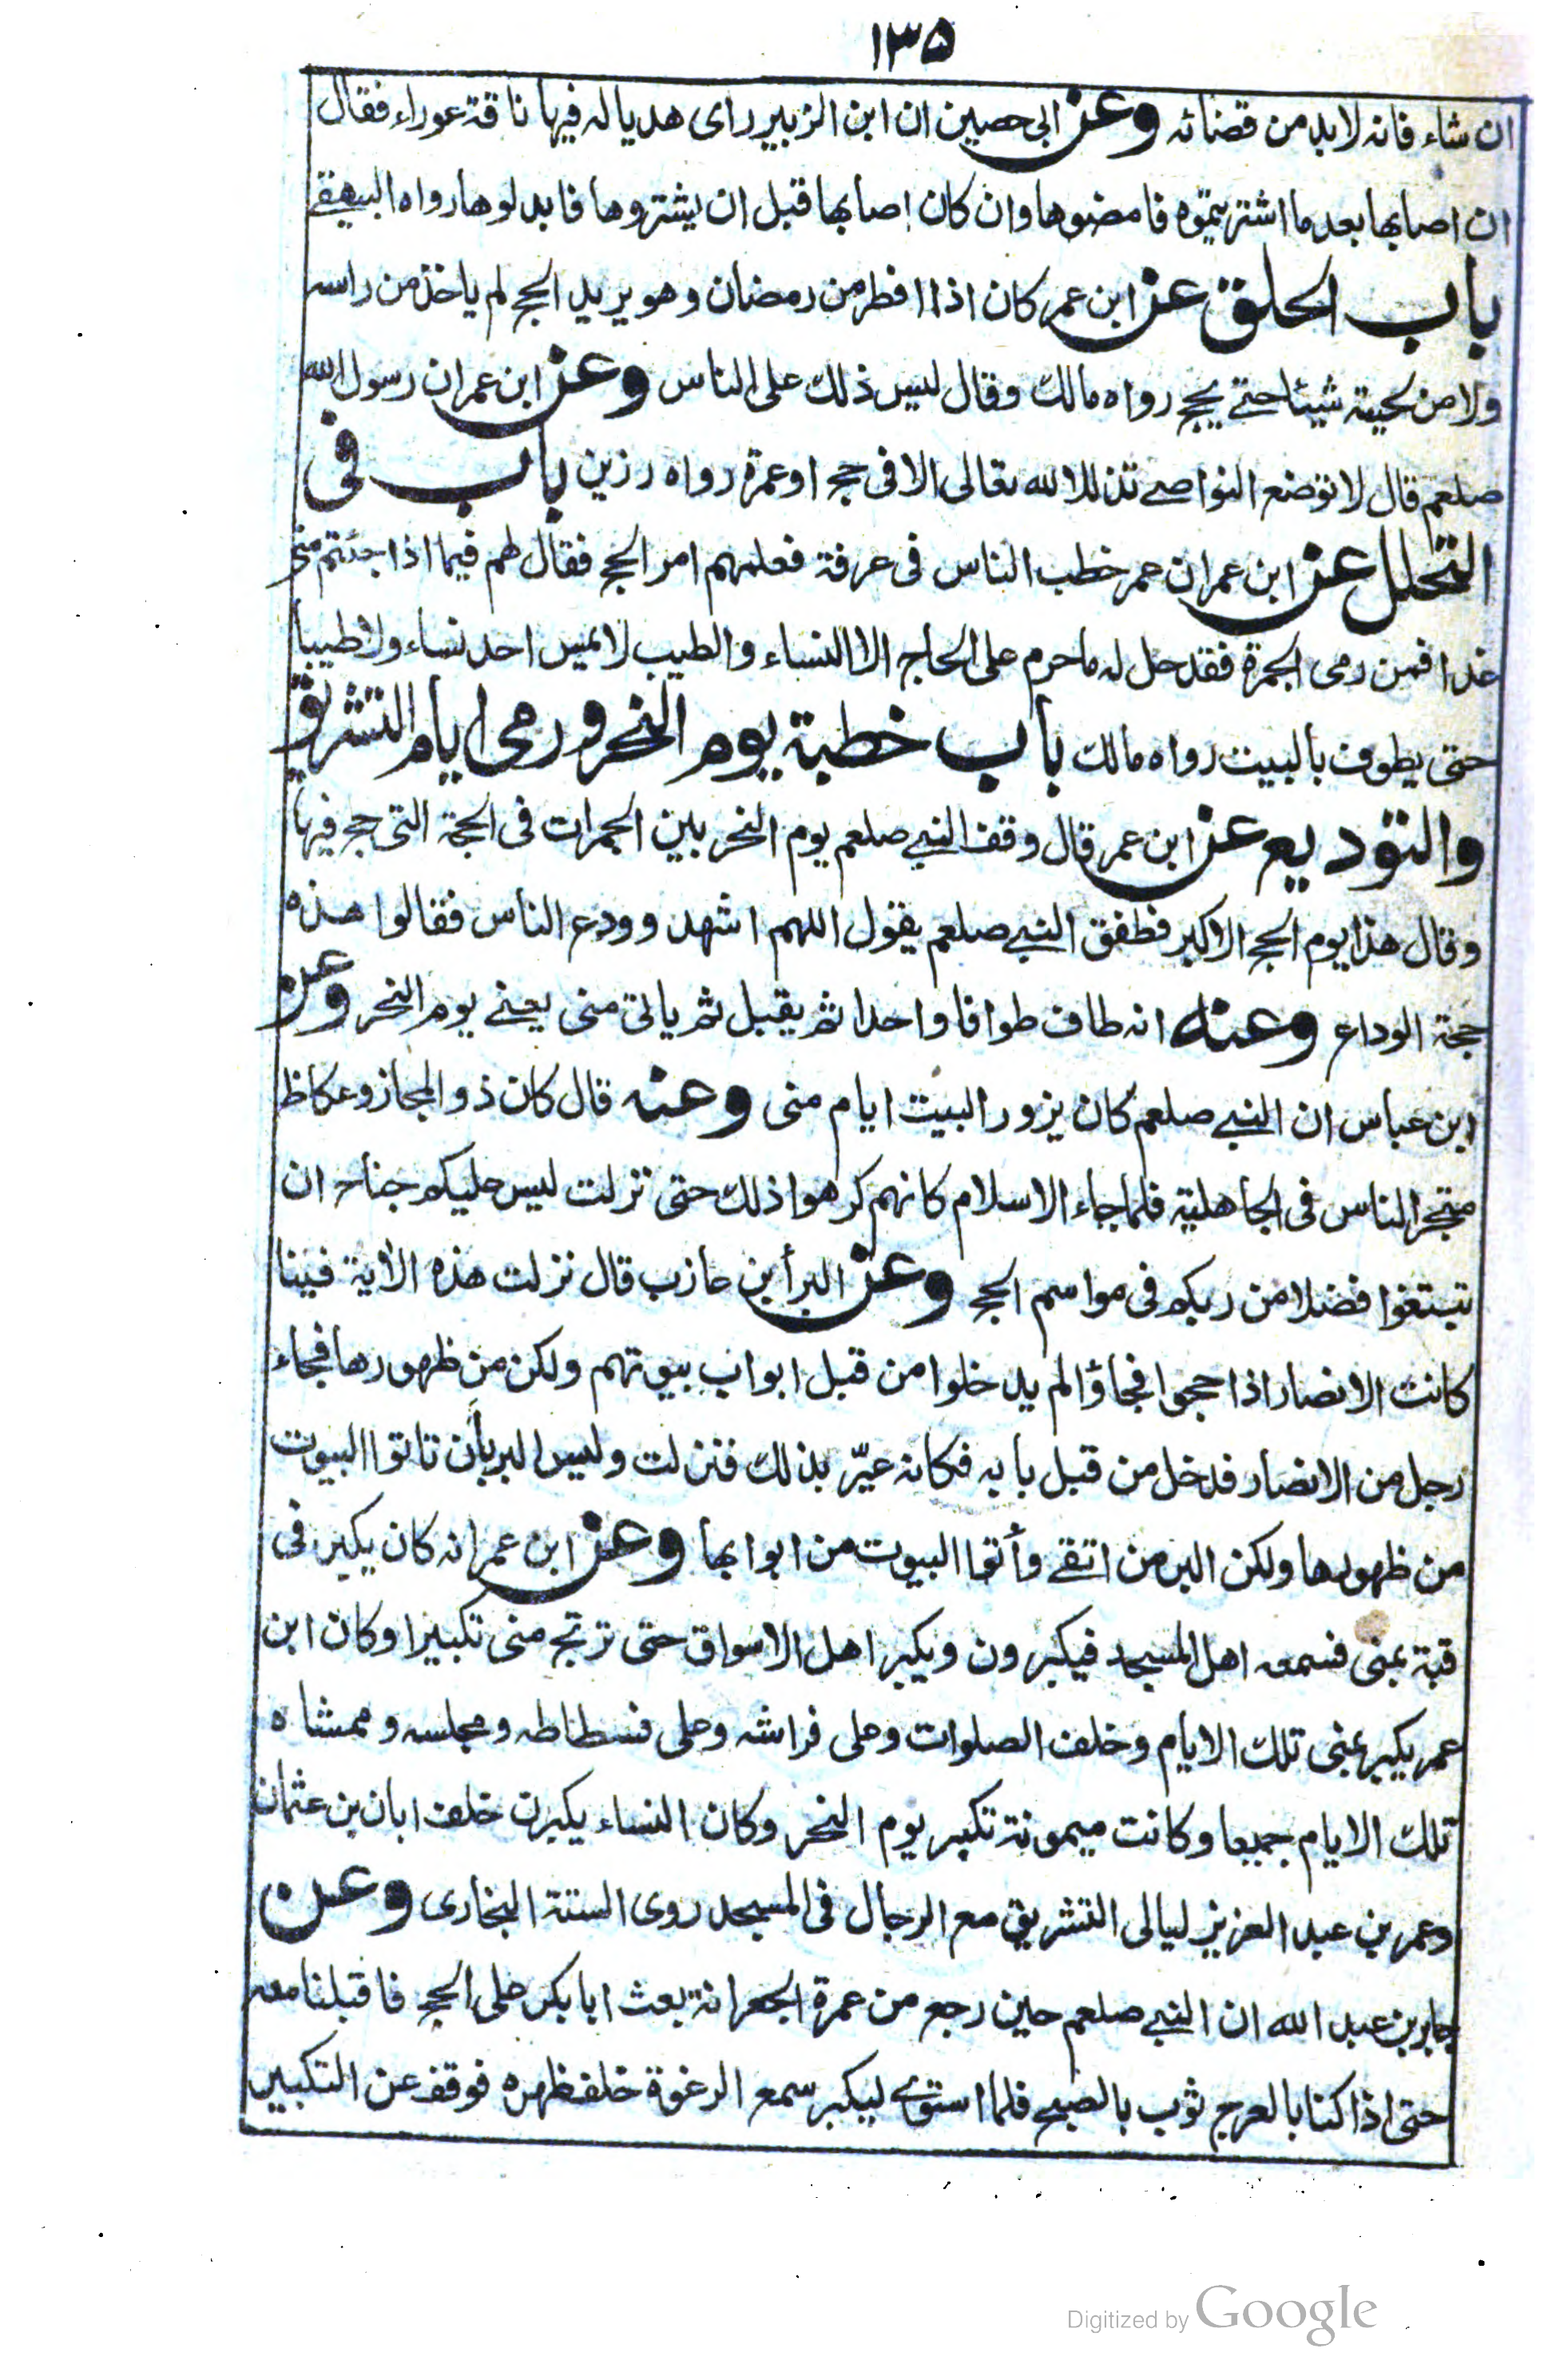 ١٣٥
ان شاء فانه لابد من قضائه وعن ابى حصين ان ابن الزبير راى هديا له فيها ناقة عوراء فقال
ان اصابها بعد ما اشتريتموه فامضوها وان كان اصابها قبل ان يشتروها فابدلوها رواه البيهقے
باب الحلق عن ابن عمر كان اذا افطر من رمضان وهو يريد الحج لم ياخذ من راسه
ولا من لحيته شيئا حتے يحج رواه مالك وقال ليس ذلك على الناس وعن ابن عمر ان رسول الله
صلعم قال لا توضع النواصے تذللا لله تعالى الا فى حج او عمرة رواه رزين باب فى
التحلل عن ابن عمر ان عمر خطب الناس فى عرفة فعلمهم امر الحج فقال لهم فيما اذا جئتم منى
غدا فمن رمى الجمرة فقد حل له ما حرم على الحاج الا النساء والطيب لا يمس احد نساء ولا طيبا
حتى يطوف بالبيت رواه مالك باب خطبة يوم النحر ورمى ايام التشريق
والتوديع عن ابن عمر قال وقف النبے صلعم يوم النحر بين الجمرات فى الحجة التى حج فيها
وقال هذا يوم الحج الاكبر فطفق النبے صلعم يقول اللهم اشهد وودع الناس فقالوا هذه
حجة الوداع وعنه انه طاف طوافا واحدا ثم يقبل ثم ياتى منى يعنے يوم النحر وعن
ابن عباس ان النبے صلعم كان يزور البيت ايام منى وعنه قال كان ذو المجاز وعكاظ
متجر الناس فى الجاهلية فلما جاء الاسلام كانهم كرهوا ذلك حتى نزلت ليس عليكم جناح ان
تبتغوا فضلا من ربكم فى مواسم الحج وعن البرأ بن عازب قال نزلت هذه الاية فينا
كانت الانصار اذا حجوا فجاؤا لم يدخلوا من قبل ابواب بيوتهم ولكن من ظهورها فجاء
رجل من الانصار فدخل من قبل بابه فكانه عيّر بذلك فنزلت وليس البر بأن تاتوا البيوت
من ظهورها ولكن البر من اتقے وأتوا البيوت من ابوابها وعن ابن عمر انه كان يكبر فى
قبة بمنى فسمعه اهل المسجد فيكبرون ويكبر اهل الاسواق حتى ترتج منى تكبيرا وكان ابن
عمر يكبر بمنى تلك الايام وخلف الصلوات وعلى فراشه وعلى فسطاطه ومجلسه وممشاه
تلك الايام جميعا وكانت ميمونة تكبر يوم النحر وكان النساء يكبرن خلف ابان بن عثمان
وعمر بن عبد العزيز ليالى التشريق مع الرجال فى المسجد روى الستة البخارى وعن
جابر بن عبد الله ان النبے صلعم حين رجع من عمرة الجعرانة بعث ابا بكر على الحج فاقبلنا معه
حتى اذا كنا بالعرج ثوب بالصبح فلما استوے ليكبر سمع الرغوة خلف ظهره فوقف عن التكبير
Digitized by Google